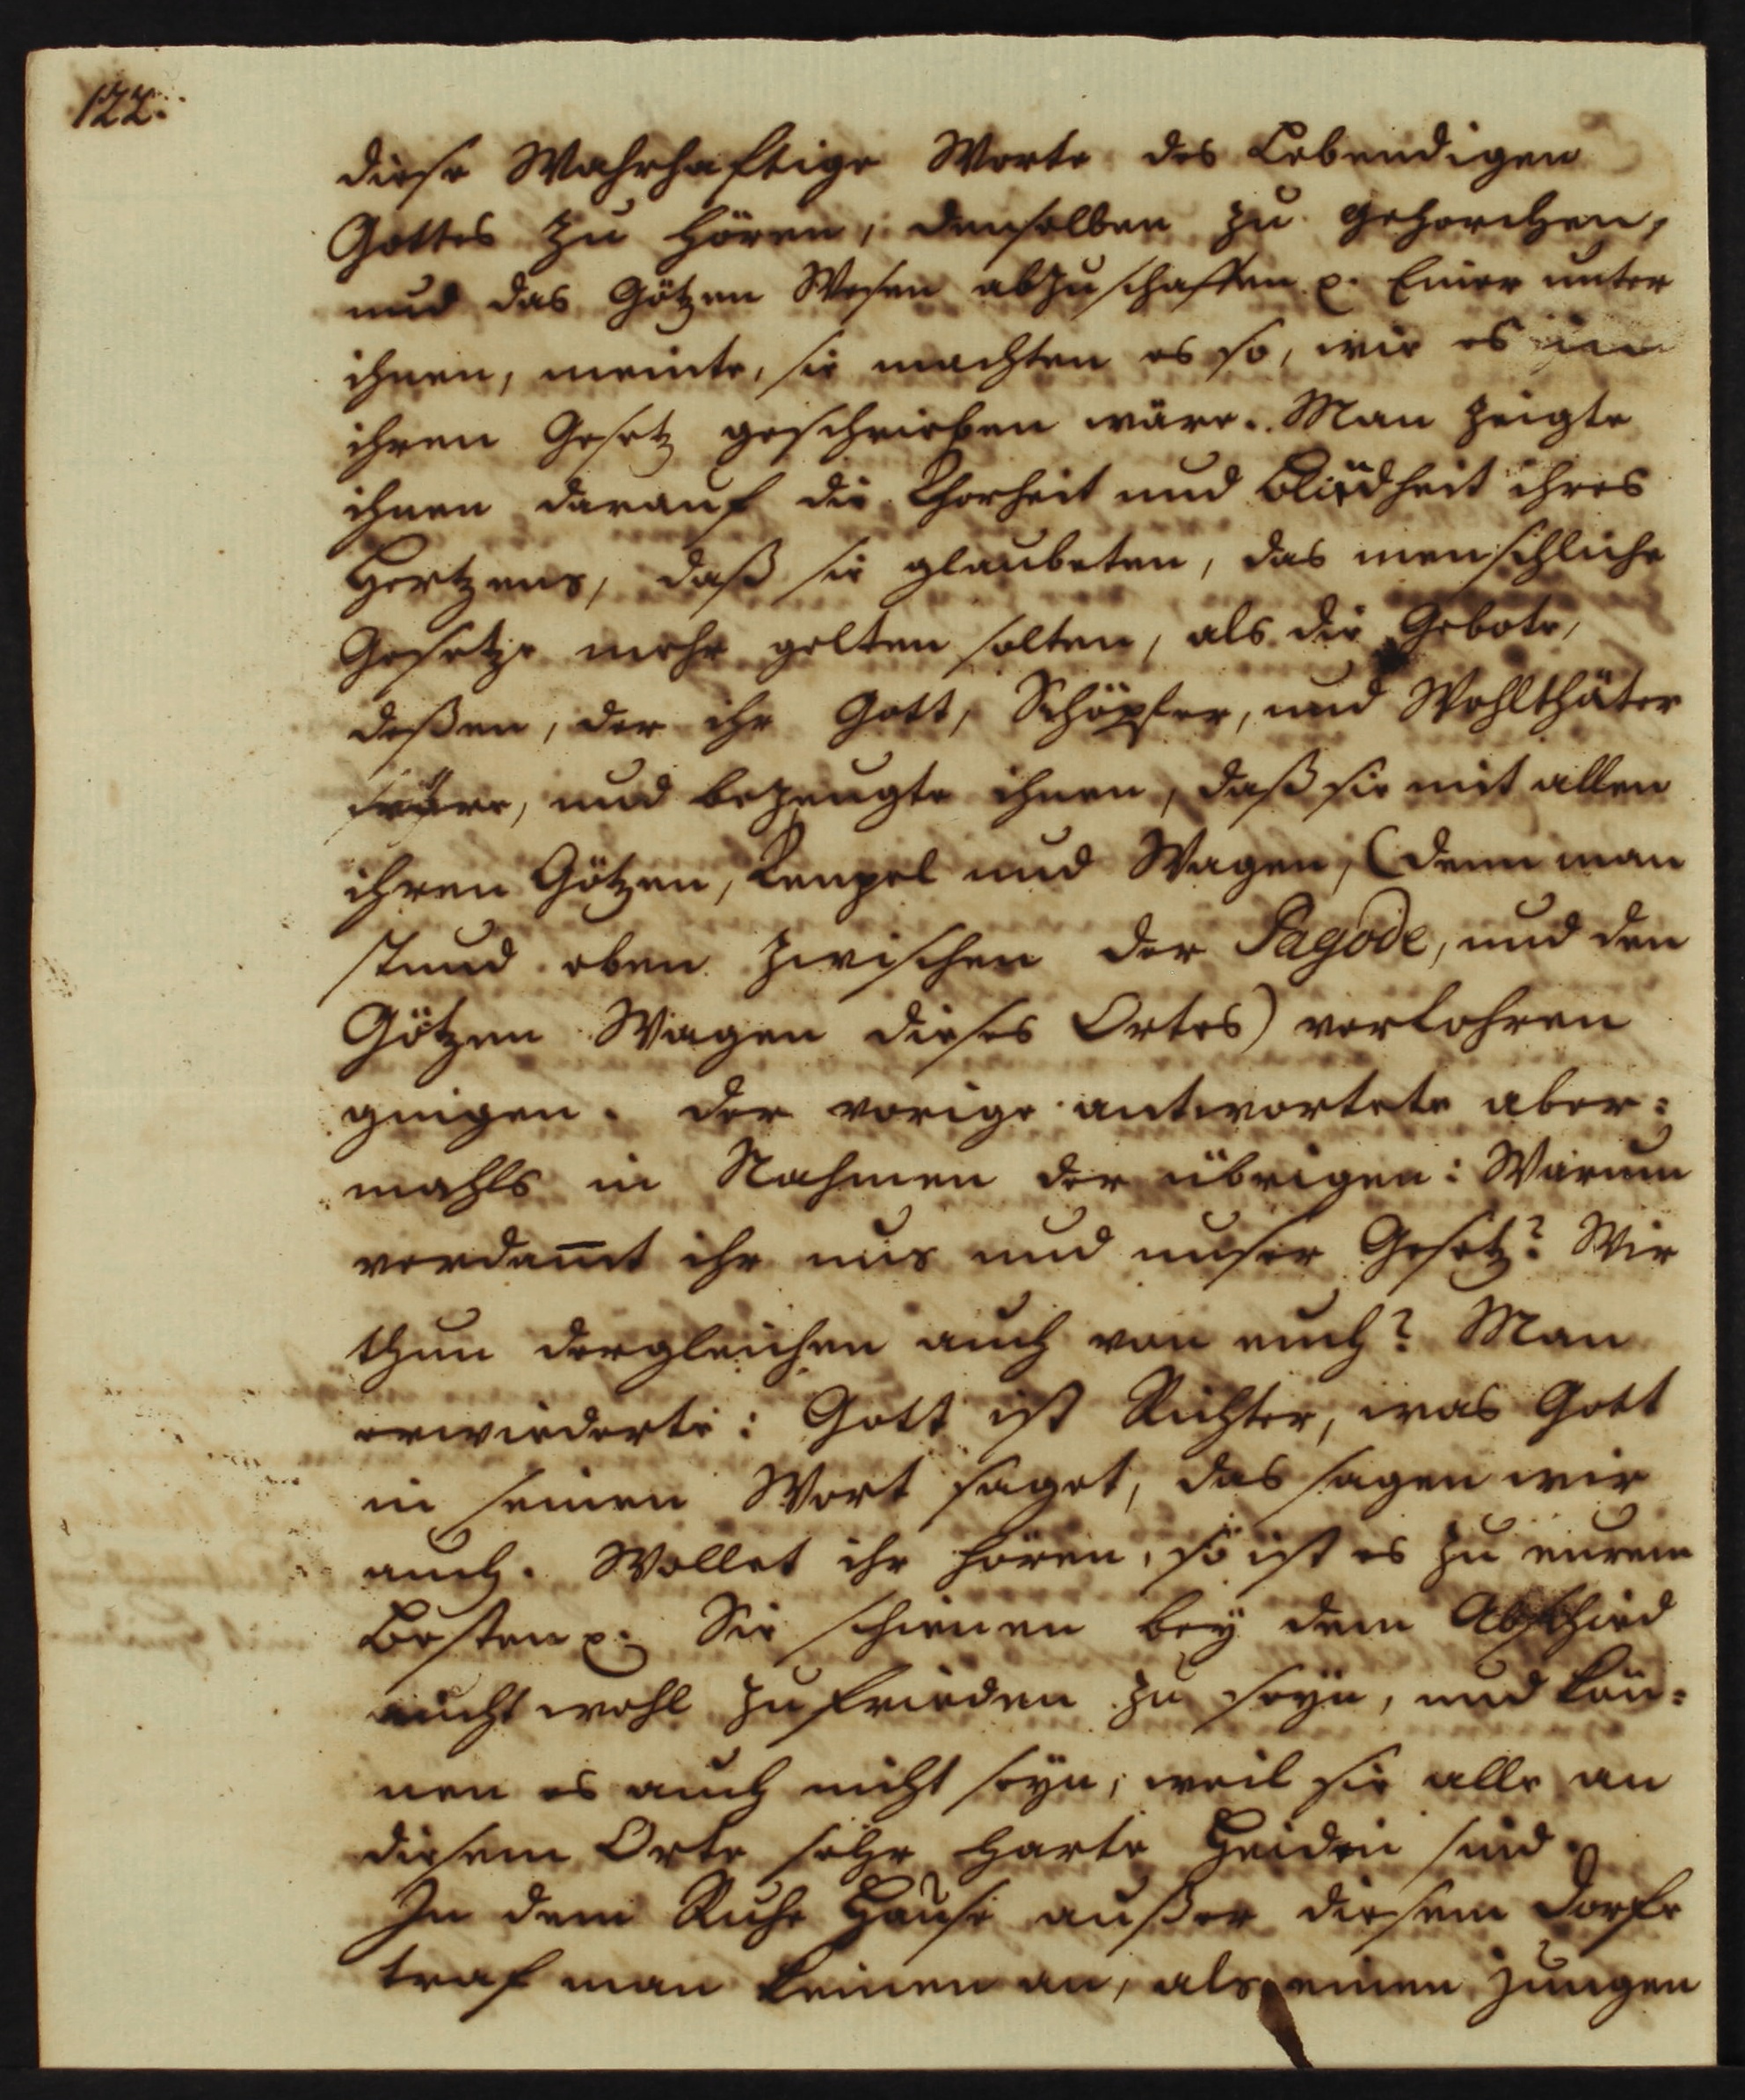 122.
diese Wahrhaftige Worte des Lebendigen
Gottes zu hören, denselben zu gehorchen,
und das Götzen Wesen abzuschaffen p. Einer unter
ihnen, meinte, sie machten es so, wie es in
ihren Gesetz geschrieben wäre. Man zeigte
ihnen darauf die Thorheit und Blindheit ihres
Hertzens, daß sie glaubeten, das menschliche
Gesetze mehr gelten solten, als die Gebote,
deßen, der ihr Gott, Schöpfer, und Wohlthäter
wäre, und bezeugte ihnen, daß sie mit allen
ihren Götzen, Tempel und Wagen, (denn man
stund eben zwischen der Pagode, und den
Götzen Wagen dieses Ortes) verlohren
gingen. Der vorige antwortete aber=
mahls in Nahmen der übrigen: Warum
verdam̅t ihr uns und unser Gesetz? Wir
thun dergleichen auch von euch? Man
erwiederte: Gott ist Richter, was Gott
in seinen Wort saget, das sagen wir
auch. Wollet ihr hören, so ist es zu eurem
Besten p. Sie schienen bey dem Abschied
nicht wohl zufrieden zu seyn, und kön=
nen es auch nicht seyn, weil sie alle an
diesem Orte sehr harte Heiden sind.
In dem Ruhe Hause außer diesem Dorfe
traf man keinen an, als einen jungen